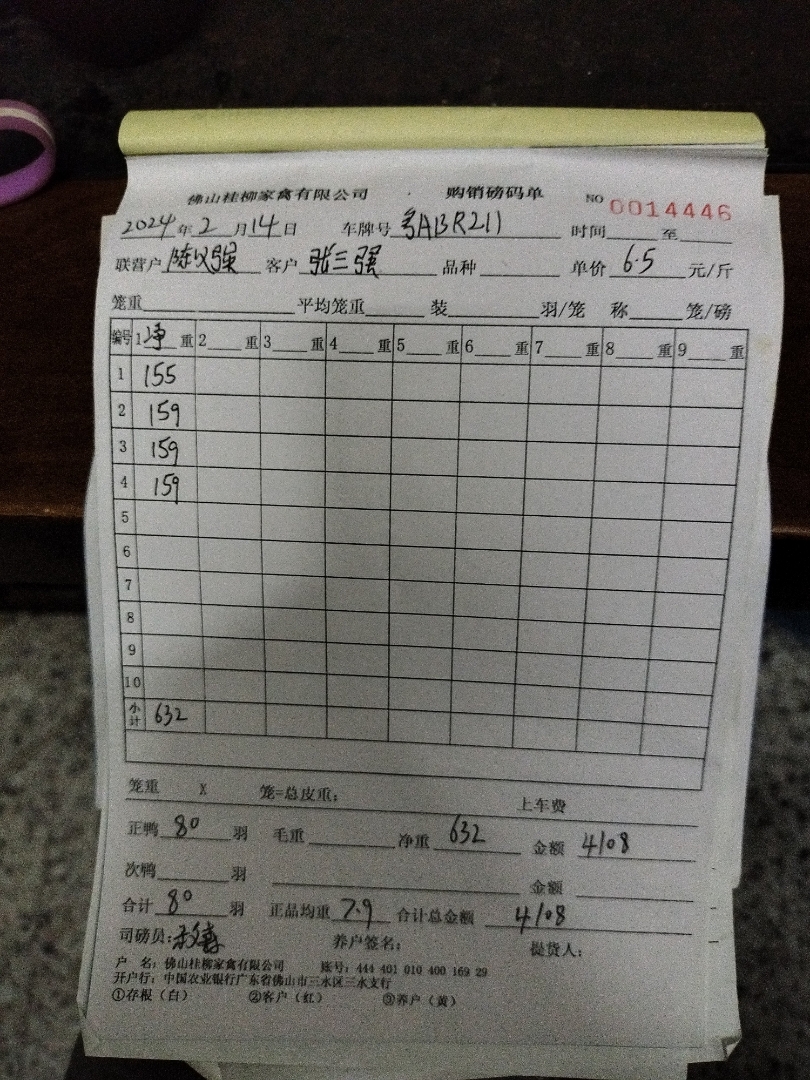 佛山桂柳家禽有限公司 · 购销磅码单 NO 0014446
2024年2月14日 车牌号 ABR211 时间____至____
联营户 陈义强 客户 张三强 品种____ 单价 6.5 元/斤
笼重____平均笼重____装____羽/笼 称____笼/磅
编号 1净重 2____重 3____重 4____重 5____重 6____重 7____重 8____重 9____重
1 155
2 159
3 159
4 159
5
6
7
8
9
10
小计 632
笼重 X 笼=总皮重: 上车费
正鸭 80 羽 毛重____净重 632 金额 4108
次鸭____羽 金额____
合计 80 羽 正品均重 7.9 合计总金额 4108
司磅员: 养户签名: 提货人:
户 名: 佛山桂柳家禽有限公司 账号: 444 401 010 400 169 29
开户行: 中国农业银行广东省佛山市三水区三水支行
①存根（白） ②客户（红） ③养户（黄）